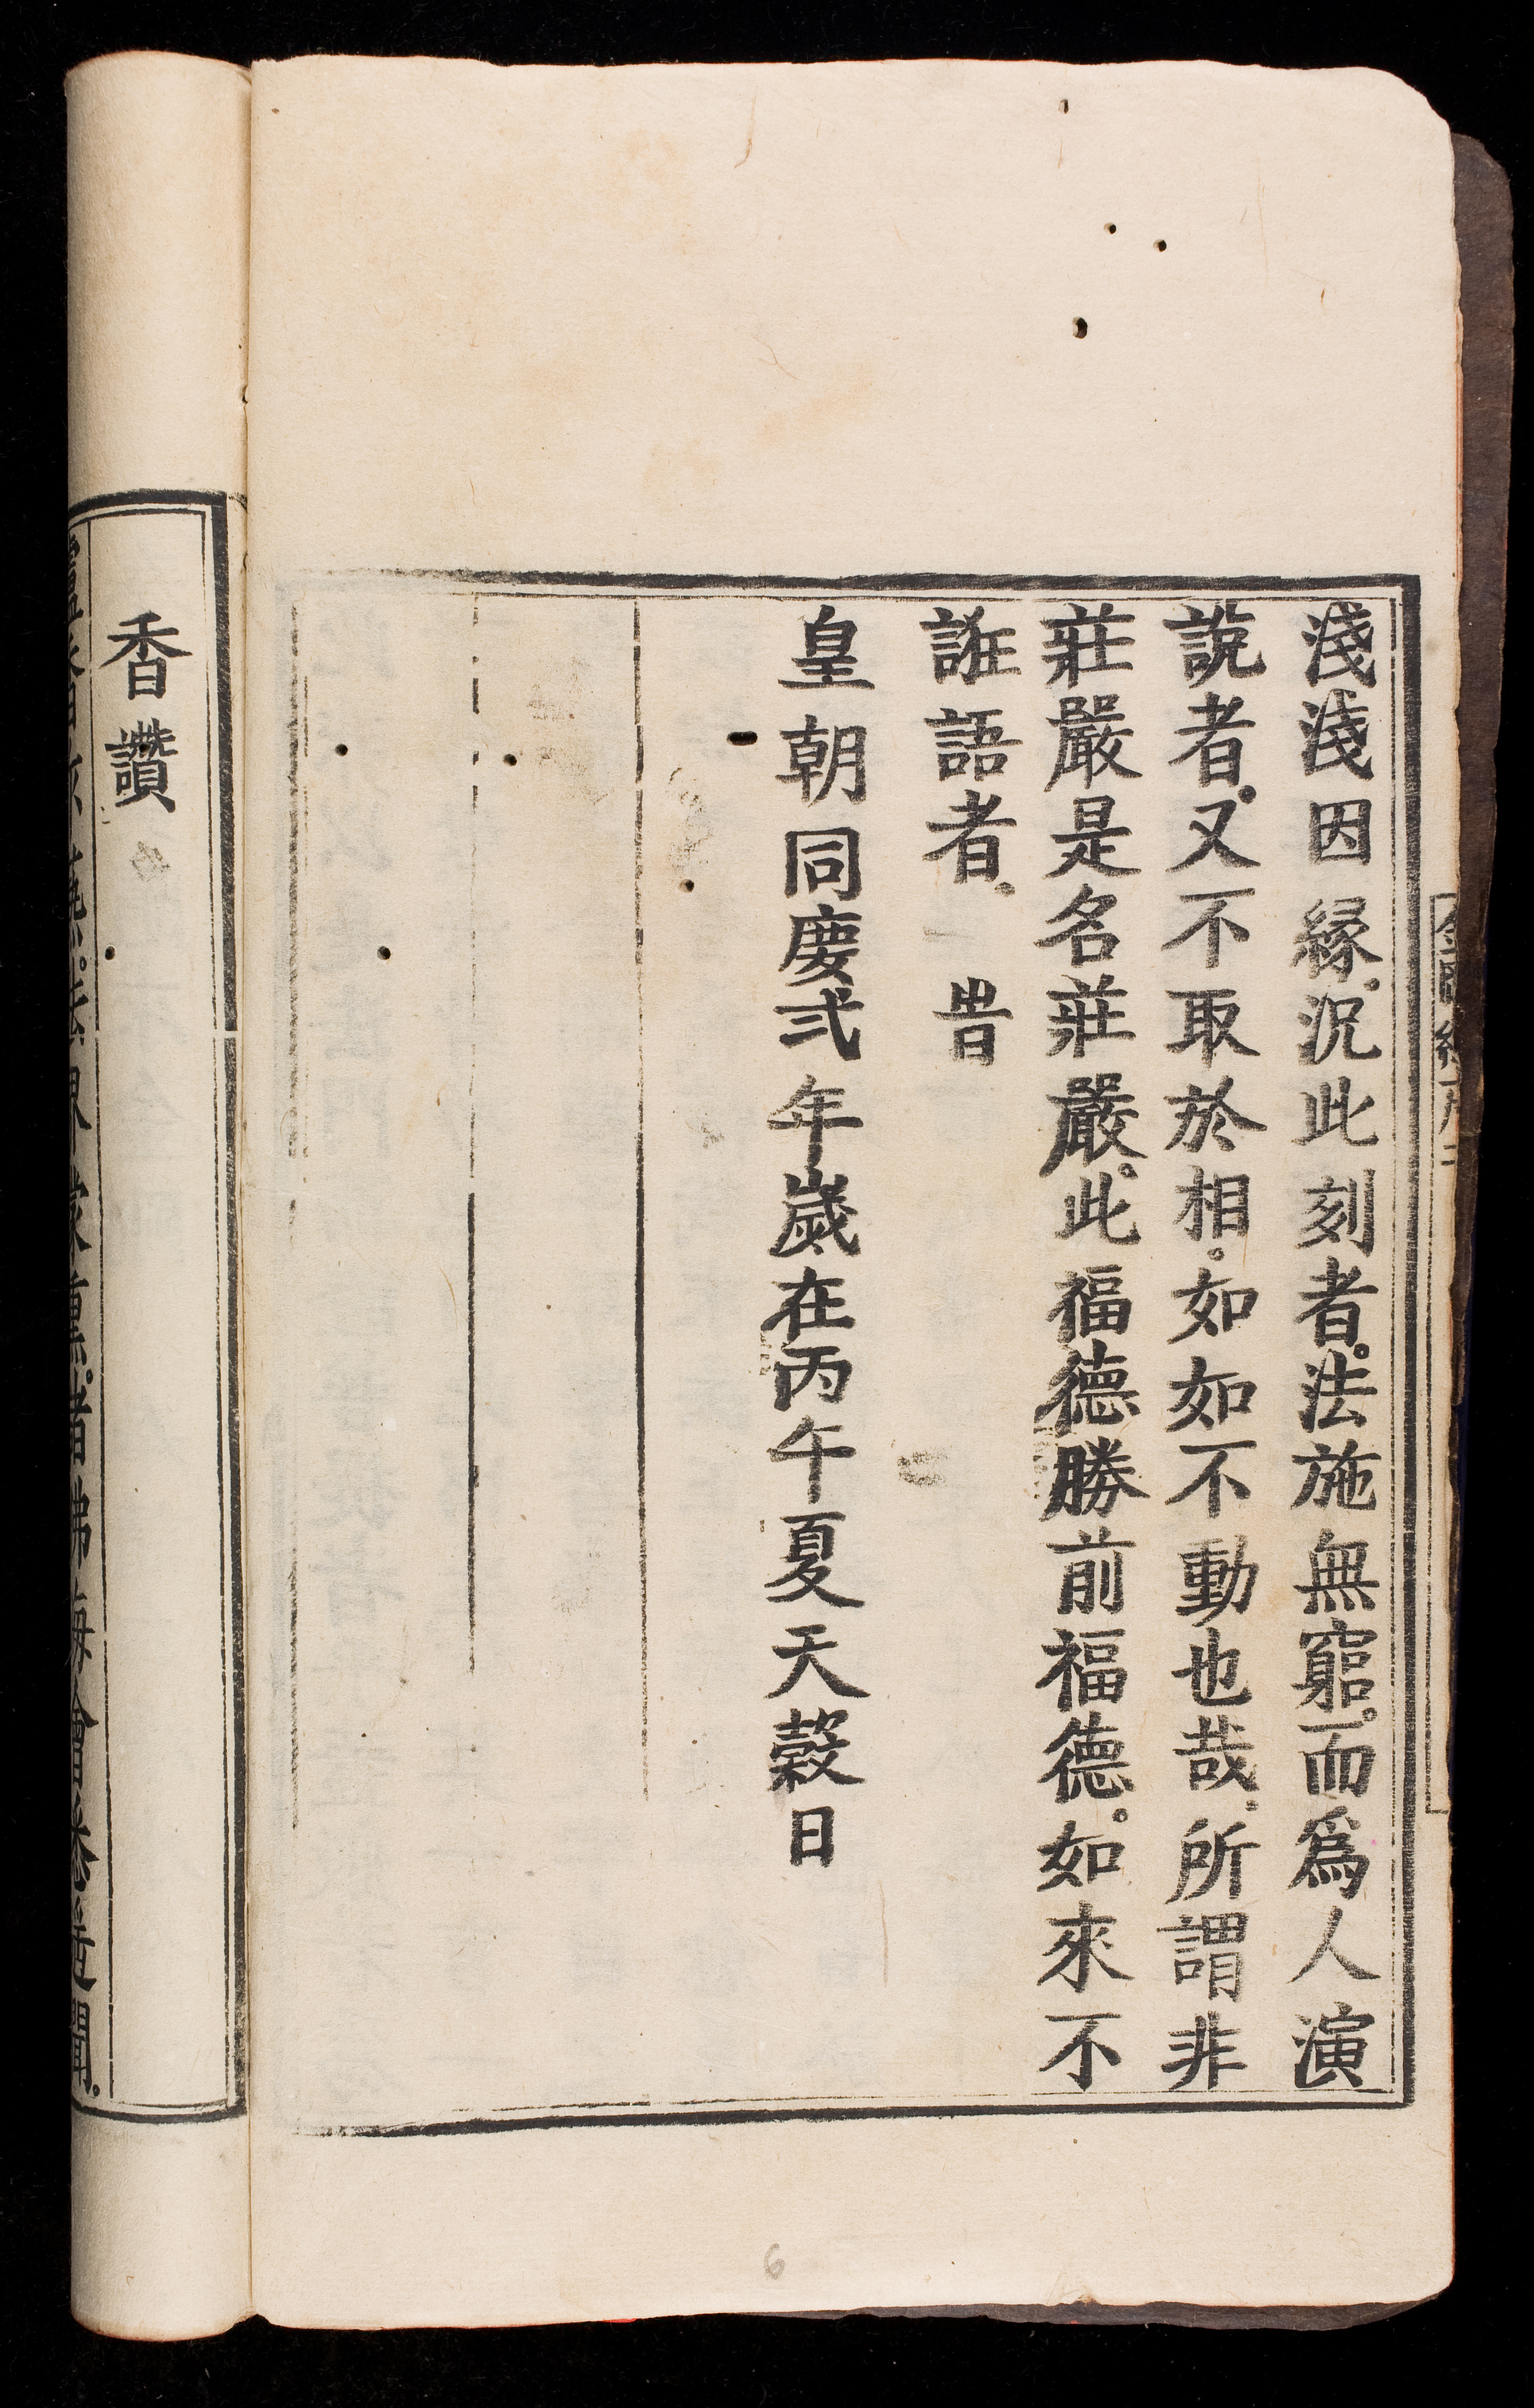 淺淺因縁。况此刻者。法施無窮。而爲人演
說者。又不取於相。如如不動也哉。所謂非
莊嚴是名莊嚴。此福德勝前福德。如來不
誑語者。旹
皇朝同慶弍年歲在丙午夏天穀日
香讚
6